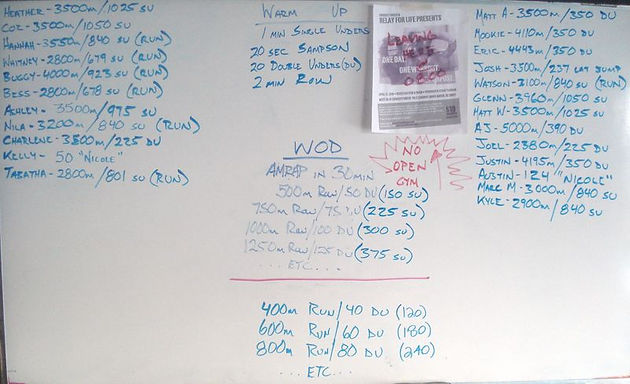 HEATHER - 3500m/1025 SU
COZ - 3500m/1050 SU
HANNAH - 3550m/840 SU (RUN)
WHITNEY - 2800m/679 SU (RUN)
BUGGY - 4000m/923 SU (RUN)
BESS - 2800m/678 SU (RUN)
ASHLEY - 3500m/975 SU
NILA - 3200m/840 SU (RUN)
CHARLENE - 3500m/225 DU
KELLY - 50 "NICOLE"
TABATHA - 2800m/801 SU (RUN)
WARM UP
1 MIN SINGLE UNDERS
20 SEC SAMPSON
20 DOUBLE UNDERS (DU)
2 MIN ROW
RELAY FOR LIFE PRESENTS
LEAVING
HERE
ONE DAY.
WOD
AMRAP IN 30 MIN
500m ROW/50 DU (150 SU)
750m ROW/75 DU (225 SU)
1000m ROW/100 DU (300 SU)
1250m ROW/125 DU (375 SU)
...ETC...
NO
OPEN
GYM
400m RUN/40 DU (120)
600m RUN/60 DU (180)
800m RUN/80 DU (240)
...ETC...
MATT A - 3500m/350 DU
MOOKIE - 4110m/350 DU
ERIC - 4443m/350 DU
JOSH - 3500m/237 LAT JUMP
WATSON - 3100m/840 SU (RUN)
GLENN - 3960m/1050 SU
MATT W - 3500m/1025 SU
AJ - 5000m/390 DU
JOEL - 2380m/225 DU
JUSTIN - 4195m/350 DU
AUSTIN - 124 "NICOLE"
MARC M - 3000m/840 SU
KYLE - 2900m/840 SU